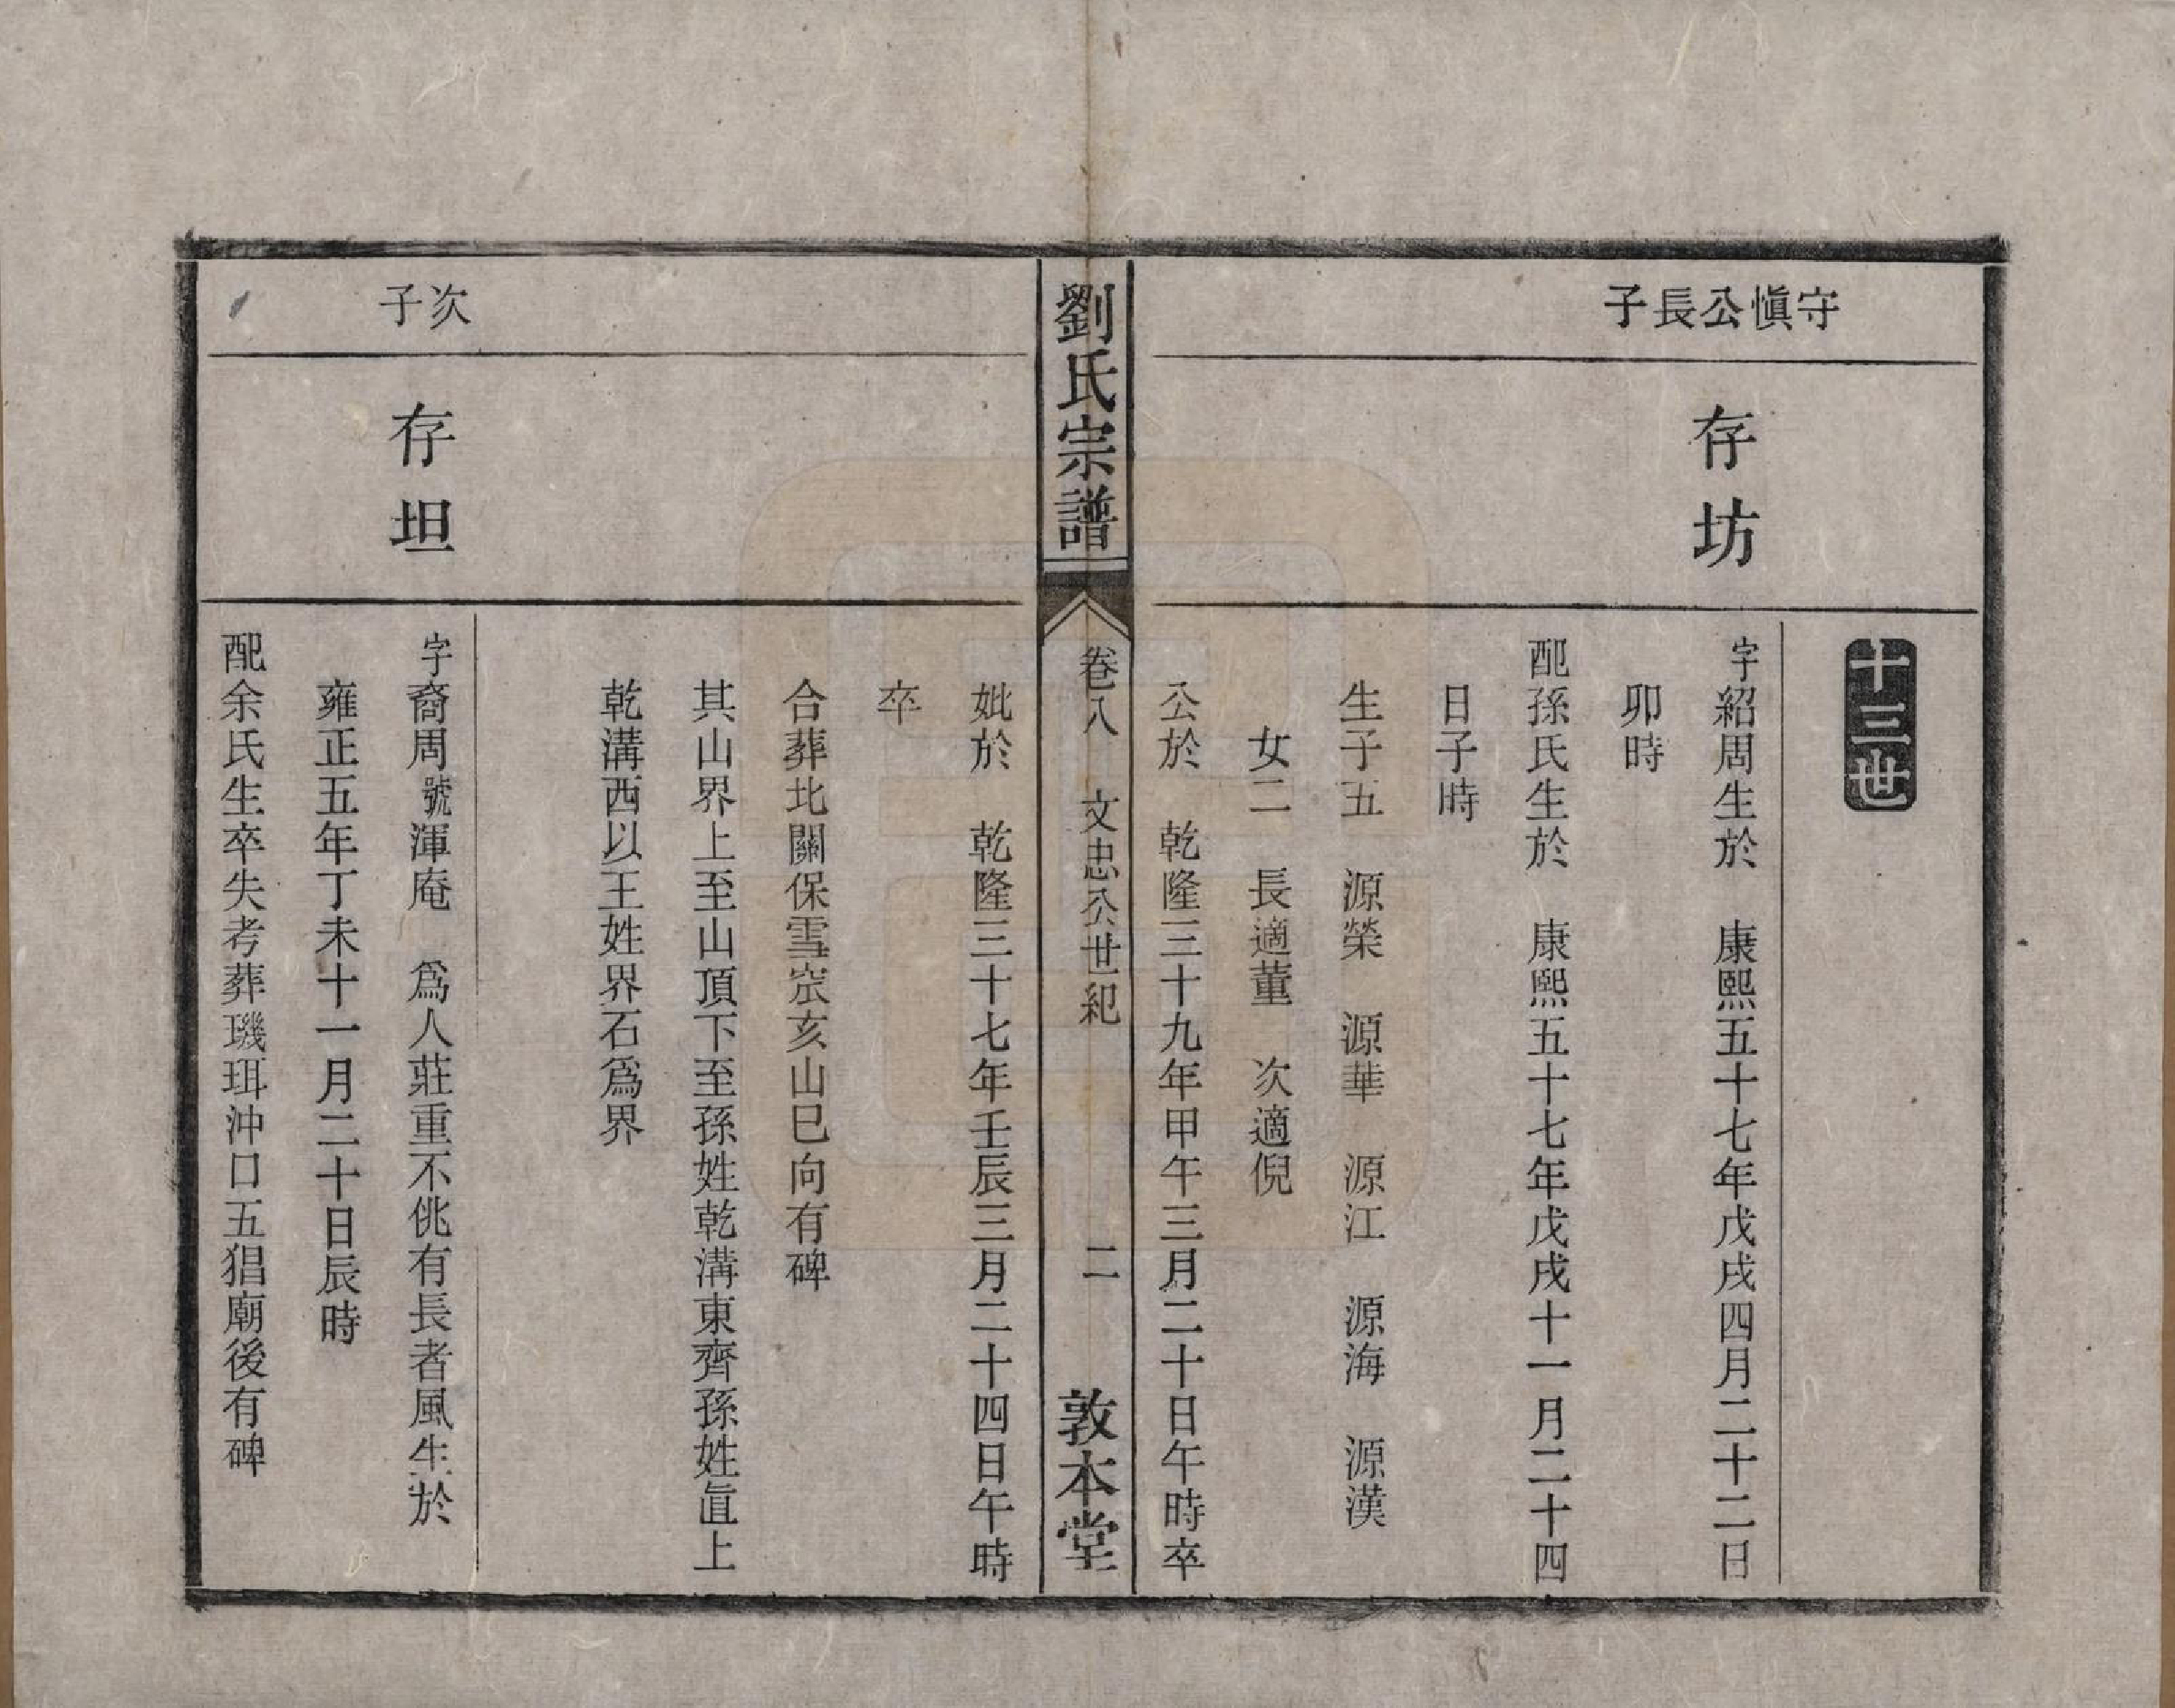 十三世
守愼公長子
存坊
字紹周生於　康熙五十七年戊戌四月二十二日
卯時
配孫氏生於　康熙五十七年戊戌十一月二十四
日子時
生子五　源榮　源華　源江　源海　源漢
女二　長適董　次適倪
公於　乾隆三十九年甲午三月二十日午時卒
劉氏宗譜
卷八　文忠公世紀
二
敦本堂
妣於　乾隆三十七年壬辰三月二十四日午時
卒
合葬北關保雪窊亥山巳向有碑
其山界上至山頂下至孫姓乾溝東齊孫姓直上
乾溝西以王姓界石爲界
次子
存坦
字裔周號渾庵　爲人莊重不佻有長者風生於
雍正五年丁未十一月二十日辰時
配余氏生卒失考葬璣珥沖口五猖廟後有碑